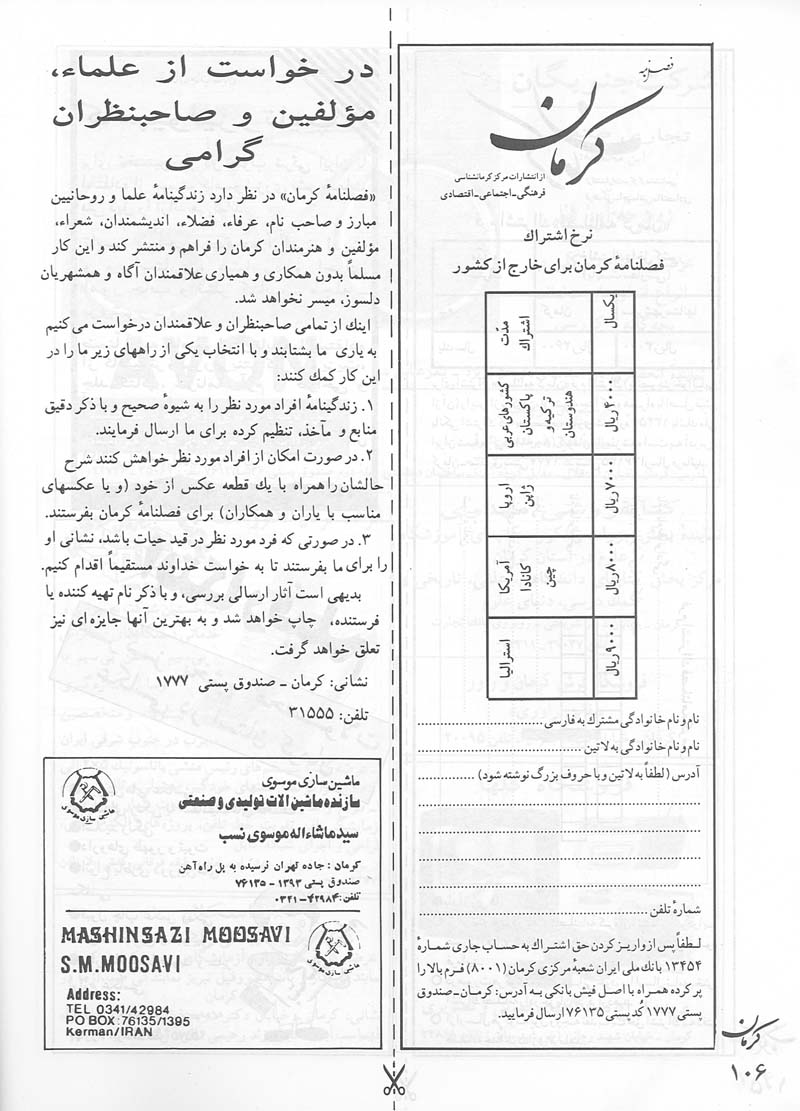 فصلنامه
کرمان
از انتشارات مرکز کرمانشناسی
فرهنگی-اجتماعی-اقتصادی
نرخ اشتراك
فصلنامهٔ کرمان برای خارج از کشور
مدّت اشتراك
یکسال
کشورهای عربی پاکستان ترکیه و هندوستان
۴۰۰۰ ریال
اروپا ژاپن
۷۰۰۰ ریال
آمریکا کانادا چین
۸۰۰۰ ریال
استرالیا
۹۰۰۰ ریال
نام و نام خانوادگی مشترك به فارسی
نام و نام خانوادگی به لاتین
آدرس (لطفاً به لاتین و با حروف بزرگ نوشته شود)
شمارهٔ تلفن
لطفاً پس از واریز کردن حق اشتراك به حساب جاری شمارهٔ
۱۳۴۵۴ بانك ملی ایران شعبهٔ مرکزی کرمان (۸۰۰۱) فرم بالا را
پر کرده همراه با اصل فیش بانکی به آدرس: کرمان-صندوق
پستی ۱۷۷۷ کُد پستی ۷۶۱۳۵ ارسال فرمایید.
در خواست از علماء،
مؤلفین و صاحبنظران
گرامی
«فصلنامهٔ کرمان» در نظر دارد زندگینامهٔ علما و روحانیین
مبارز و صاحب نام، عرفاء، فضلاء، اندیشمندان، شعراء،
مؤلفین و هنرمندان کرمان را فراهم و منتشر کند و این کار
مسلماً بدون همکاری و همیاری علاقمندان آگاه و همشهریان
دلسوز، میسر نخواهد شد.
اینك از تمامی صاحبنظران و علاقمندان درخواست می کنیم
به یاری ما بشتابند و با انتخاب یکی از راههای زیر ما را در
این کار کمك کنند:
۱. زندگینامهٔ افراد مورد نظر را به شیوهٔ صحیح و با ذکر دقیق
منابع و مآخذ، تنظیم کرده برای ما ارسال فرمایند.
۲. در صورت امکان از افراد مورد نظر خواهش کنند شرح
حالشان را همراه با یك قطعه عکس از خود (و یا عکسهای
مناسب با یاران و همکاران) برای فصلنامهٔ کرمان بفرستند.
۳. در صورتی که فرد مورد نظر در قید حیات باشد، نشانی او
را برای ما بفرستند تا به خواست خداوند مستقیماً اقدام کنیم.
بدیهی است آثار ارسالی بررسی، و با ذکر نام تهیه کننده یا
فرستنده، چاپ خواهد شد و به بهترین آنها جایزه ای نیز
تعلق خواهد گرفت.
نشانی: کرمان ـ صندوق پستی ۱۷۷۷
تلفن: ۳۱۵۵۵
ماشین سازی موسوی
ماشین سازی موسوی
سازنده ماشین آلات تولیدی و صنعتی
سید ماشاءاله موسوی نسب
کرمان : جاده تهران نرسیده به پل راه آهن
صندوق پستی ۱۳۹۳ - ۷۶۱۳۵
تلفن: ۴۲۹۸۴-۰۳۴۱
MASHINSAZI MOOSAVI
S.M.MOOSAVI
ماشین سازی موسوی
Address:
TEL 0341/42984
PO BOX:76135/1395
Kerman/IRAN
کرمان
۱۰۶